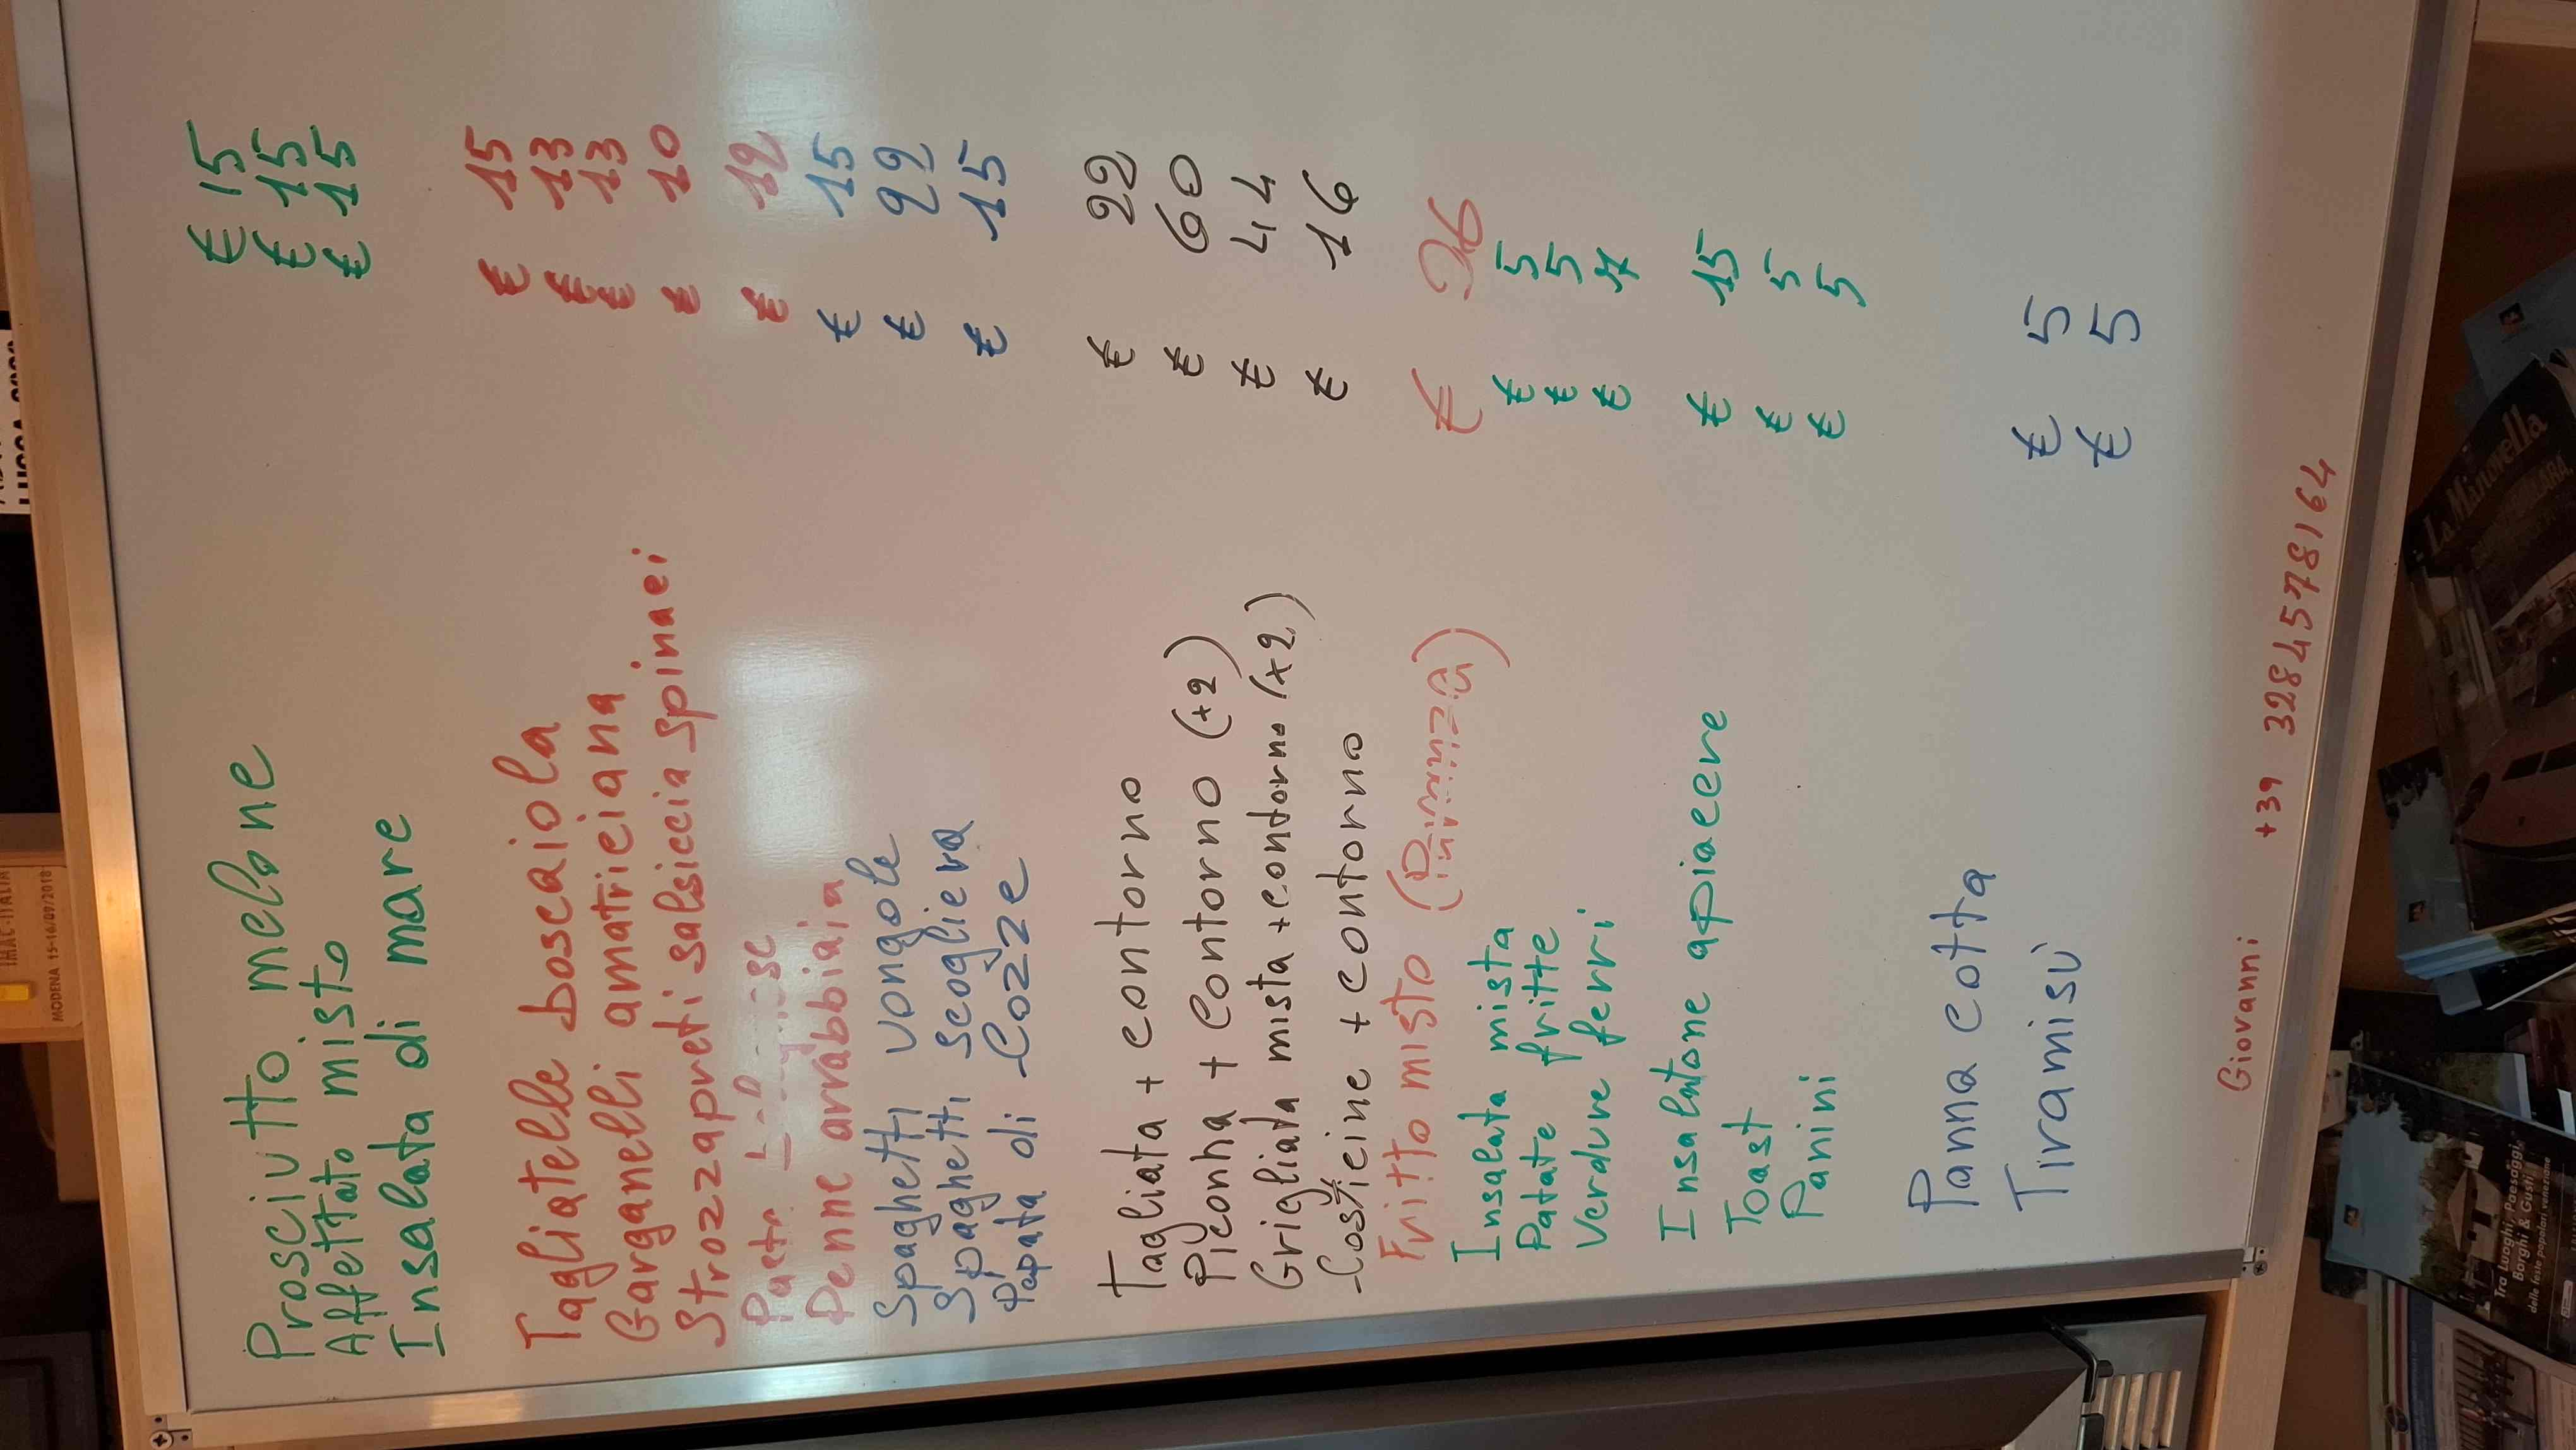 Prosciutto melone € 15
Affettato misto € 15
Insalata di mare € 15
Tagliatelle boscaiola € 15
Garganelli amatriciana € 13
Strozzapreti salsiccia spinaci € 13
Pasta € 10
Penne arrabbiaia € 12
Spaghetti vongole € 15
Spaghetti scogliera € 22
Pepata di Cozze € 15
Tagliata + contorno € 22
Piconha + contorno (+2) € 60
Grigliata mista + contorno (x2) € 44
Costicine + contorno € 16
Fritto misto € 26
Insalata mista € 5
Patate fritte € 5
Verdure ferri € 7
Insalatone apiacere € 15
Toast € 5
Panini € 5
Panna cotta € 5
Tiramisù € 5
Giovanni +39 3284578164
MODENA 15-16/09/2018
La Manovella
Tra Luoghi, Paesaggi
Borghi & Gusti
delle feste popolari veneziane